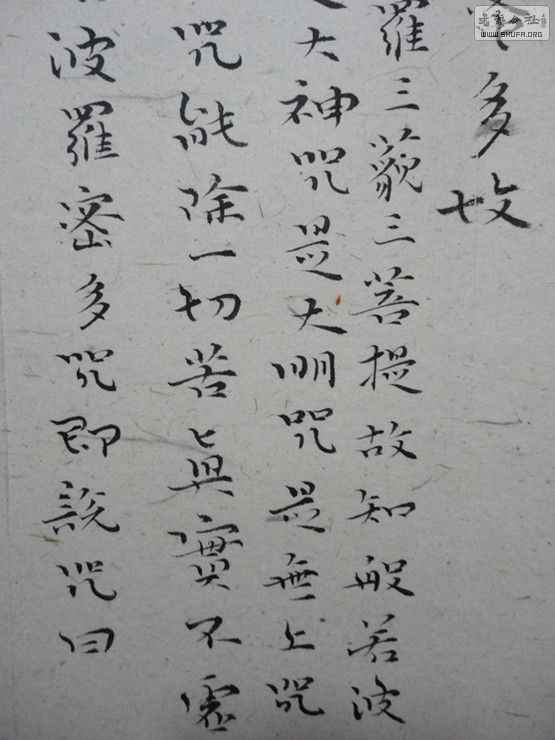 多故
羅三藐三菩提故知般若波
是大神咒是大明咒是無上咒
咒能除一切苦真實不虛
波羅密多咒即說咒曰
書法公社
WWW.SHUFA.ORG